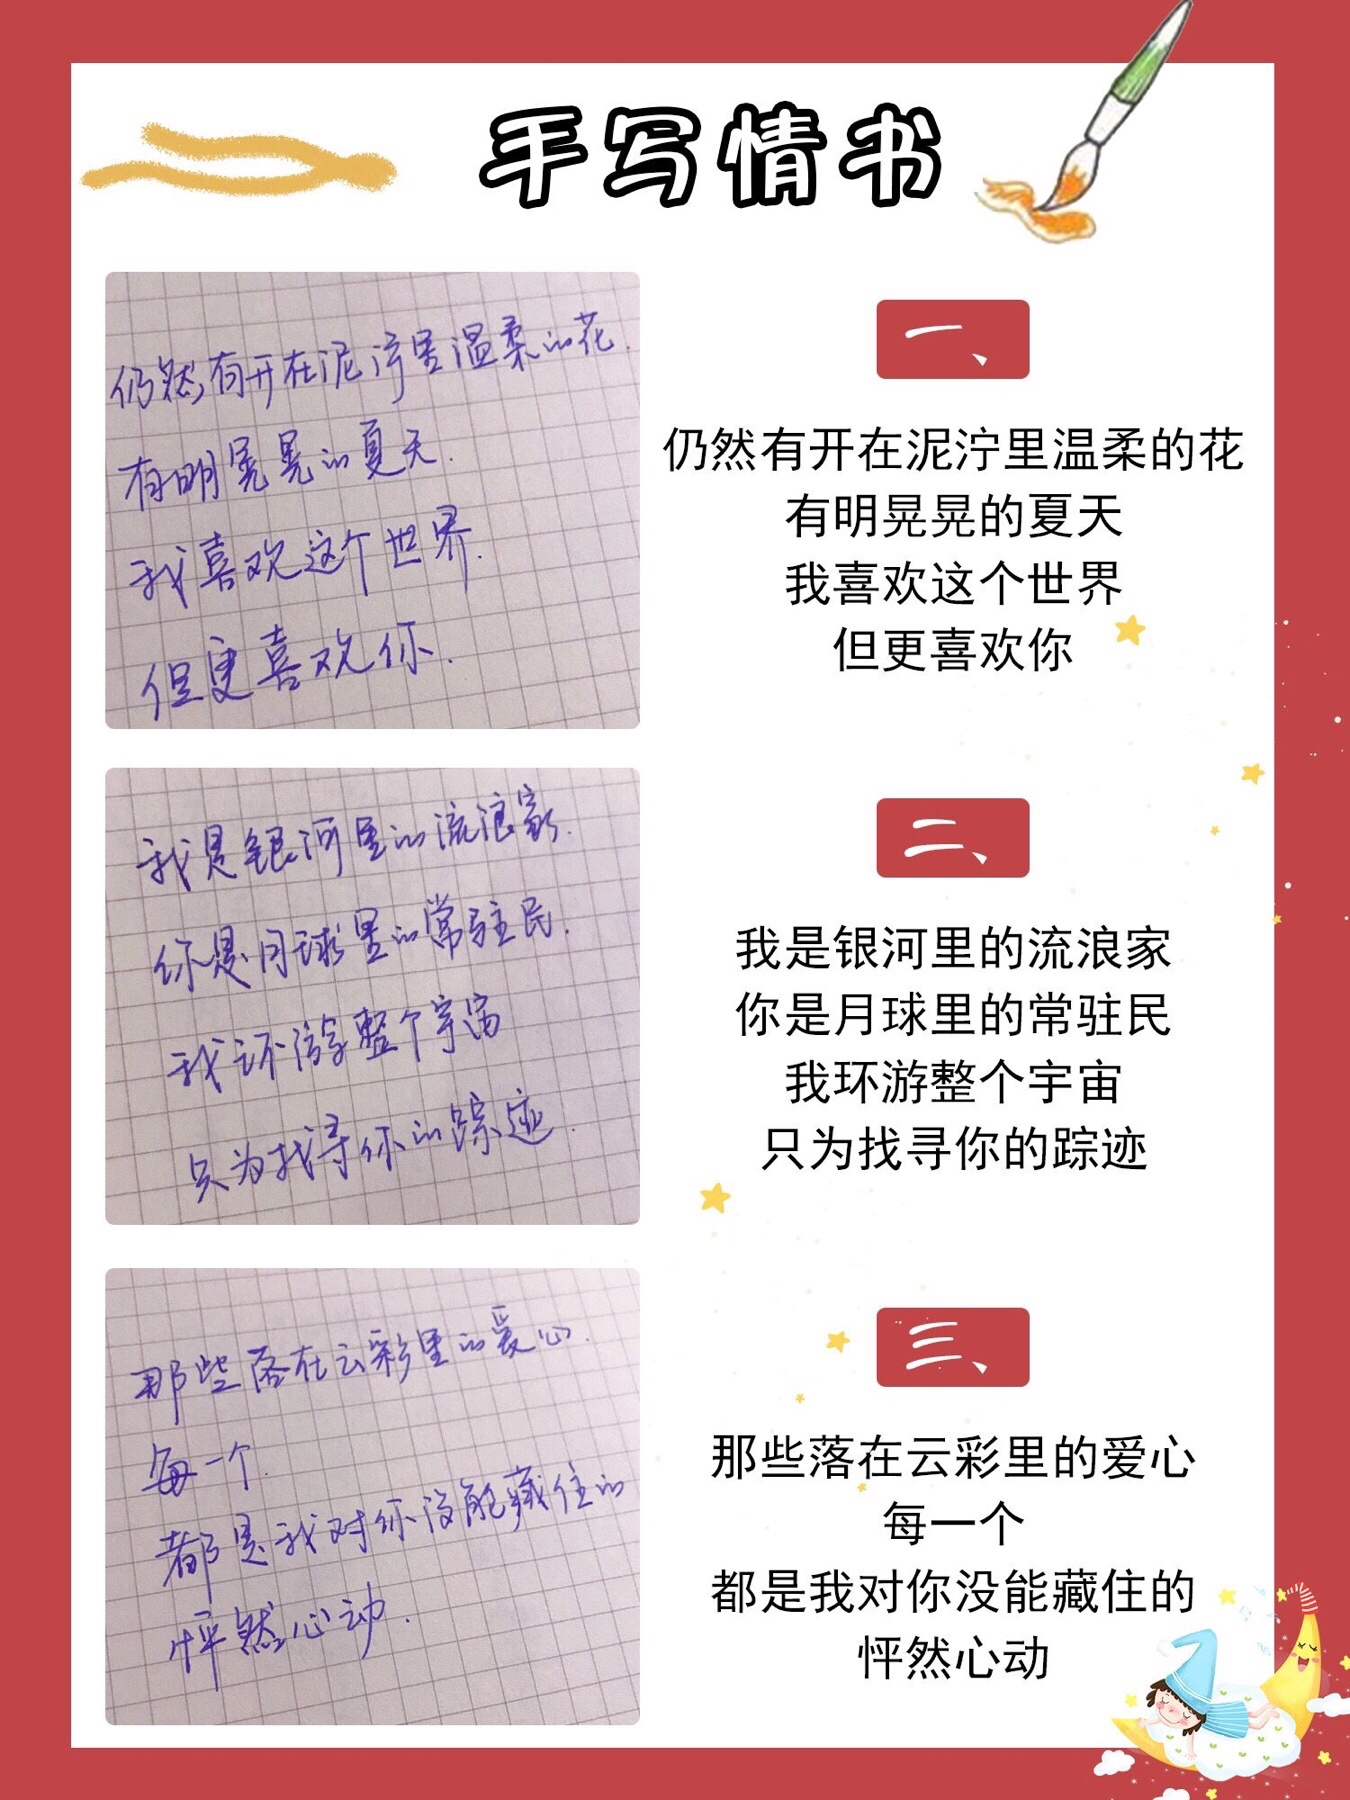 手写情书
仍然有开在泥泞里温柔的花.
有明晃晃的夏天.
我喜欢这个世界.
但更喜欢你.
一、
仍然有开在泥泞里温柔的花
有明晃晃的夏天
我喜欢这个世界
但更喜欢你
我是银河里的流浪家.
你是月球里的常驻民.
我环游整个宇宙
只为找寻你的踪迹.
二、
我是银河里的流浪家
你是月球里的常驻民
我环游整个宇宙
只为找寻你的踪迹
那些落在云彩里的爱心.
每一个.
都是我对你没能藏住的
怦然心动.
三、
那些落在云彩里的爱心
每一个
都是我对你没能藏住的
怦然心动